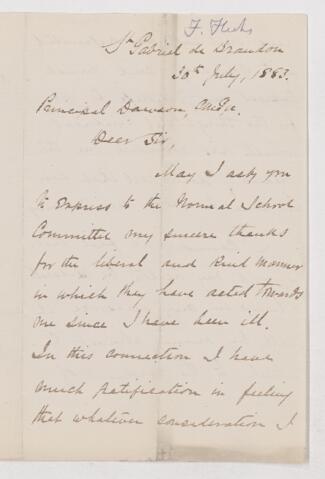 F. Hicks
St Gabriel de Brandon
30th July, 1883.
Principal Dawson,
Dear Sir,
May I ask you
to express to the Normal School
Committee my sincere thanks
for the liberal and kind manner
in which they have acted towards
me since I have been ill.
In this connection I have
much gratification in feeling
that whatever consideration I